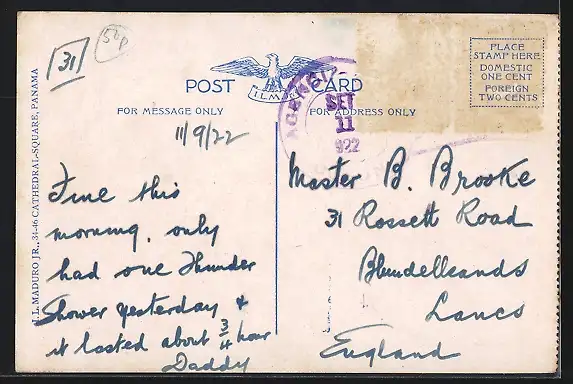 31
50p
PLACE
STAMP HERE
DOMESTIC
ONE CENT
FOREIGN
TWO CENTS
POST CARD
I.L.M.
FOR MESSAGE ONLY
FOR ADDRESS ONLY
SET
11
922
J. L. MADURO JR., 34-46 CATHEDRAL-SQUARE, PANAMA
11/9/22
Fine this
morning, only
had one Thunder
Shower yesterday &
it lasted about 3/4 hour
Daddy
Master B. Brooke
31 Rossett Road
Blundellsands
Lancs
England